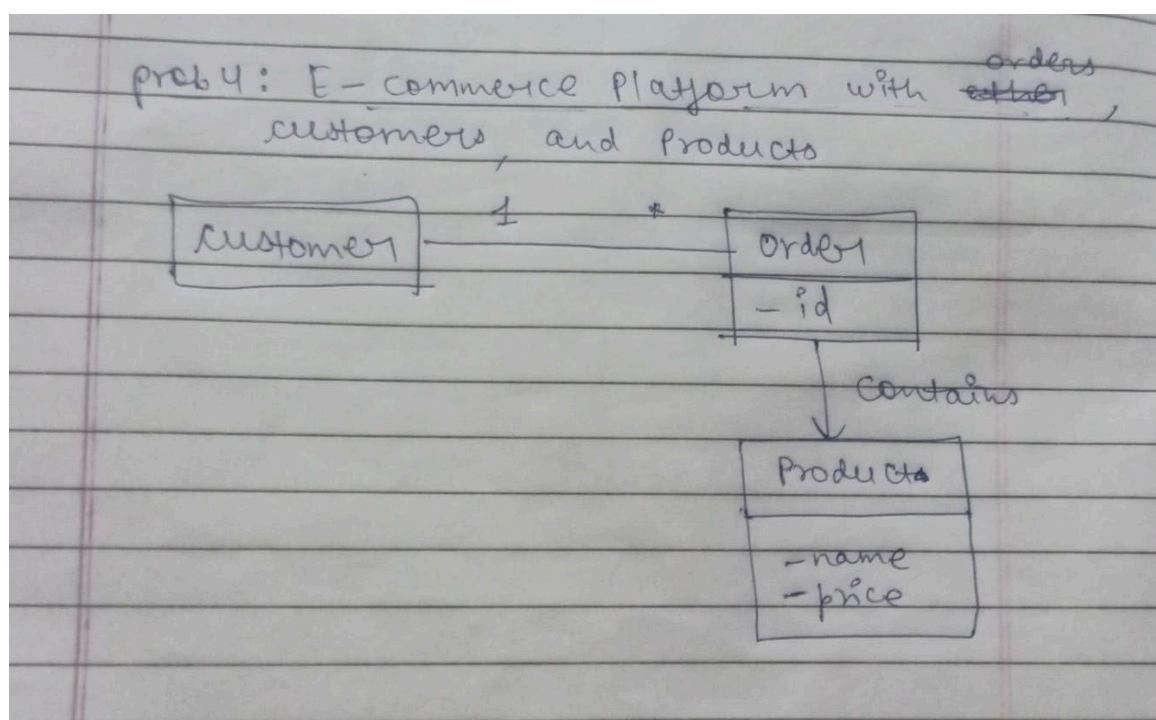 prob 4: E-commerce Platform with orders,
customers, and Products
customer 1 * order
- id
contains
Products
- name
- price